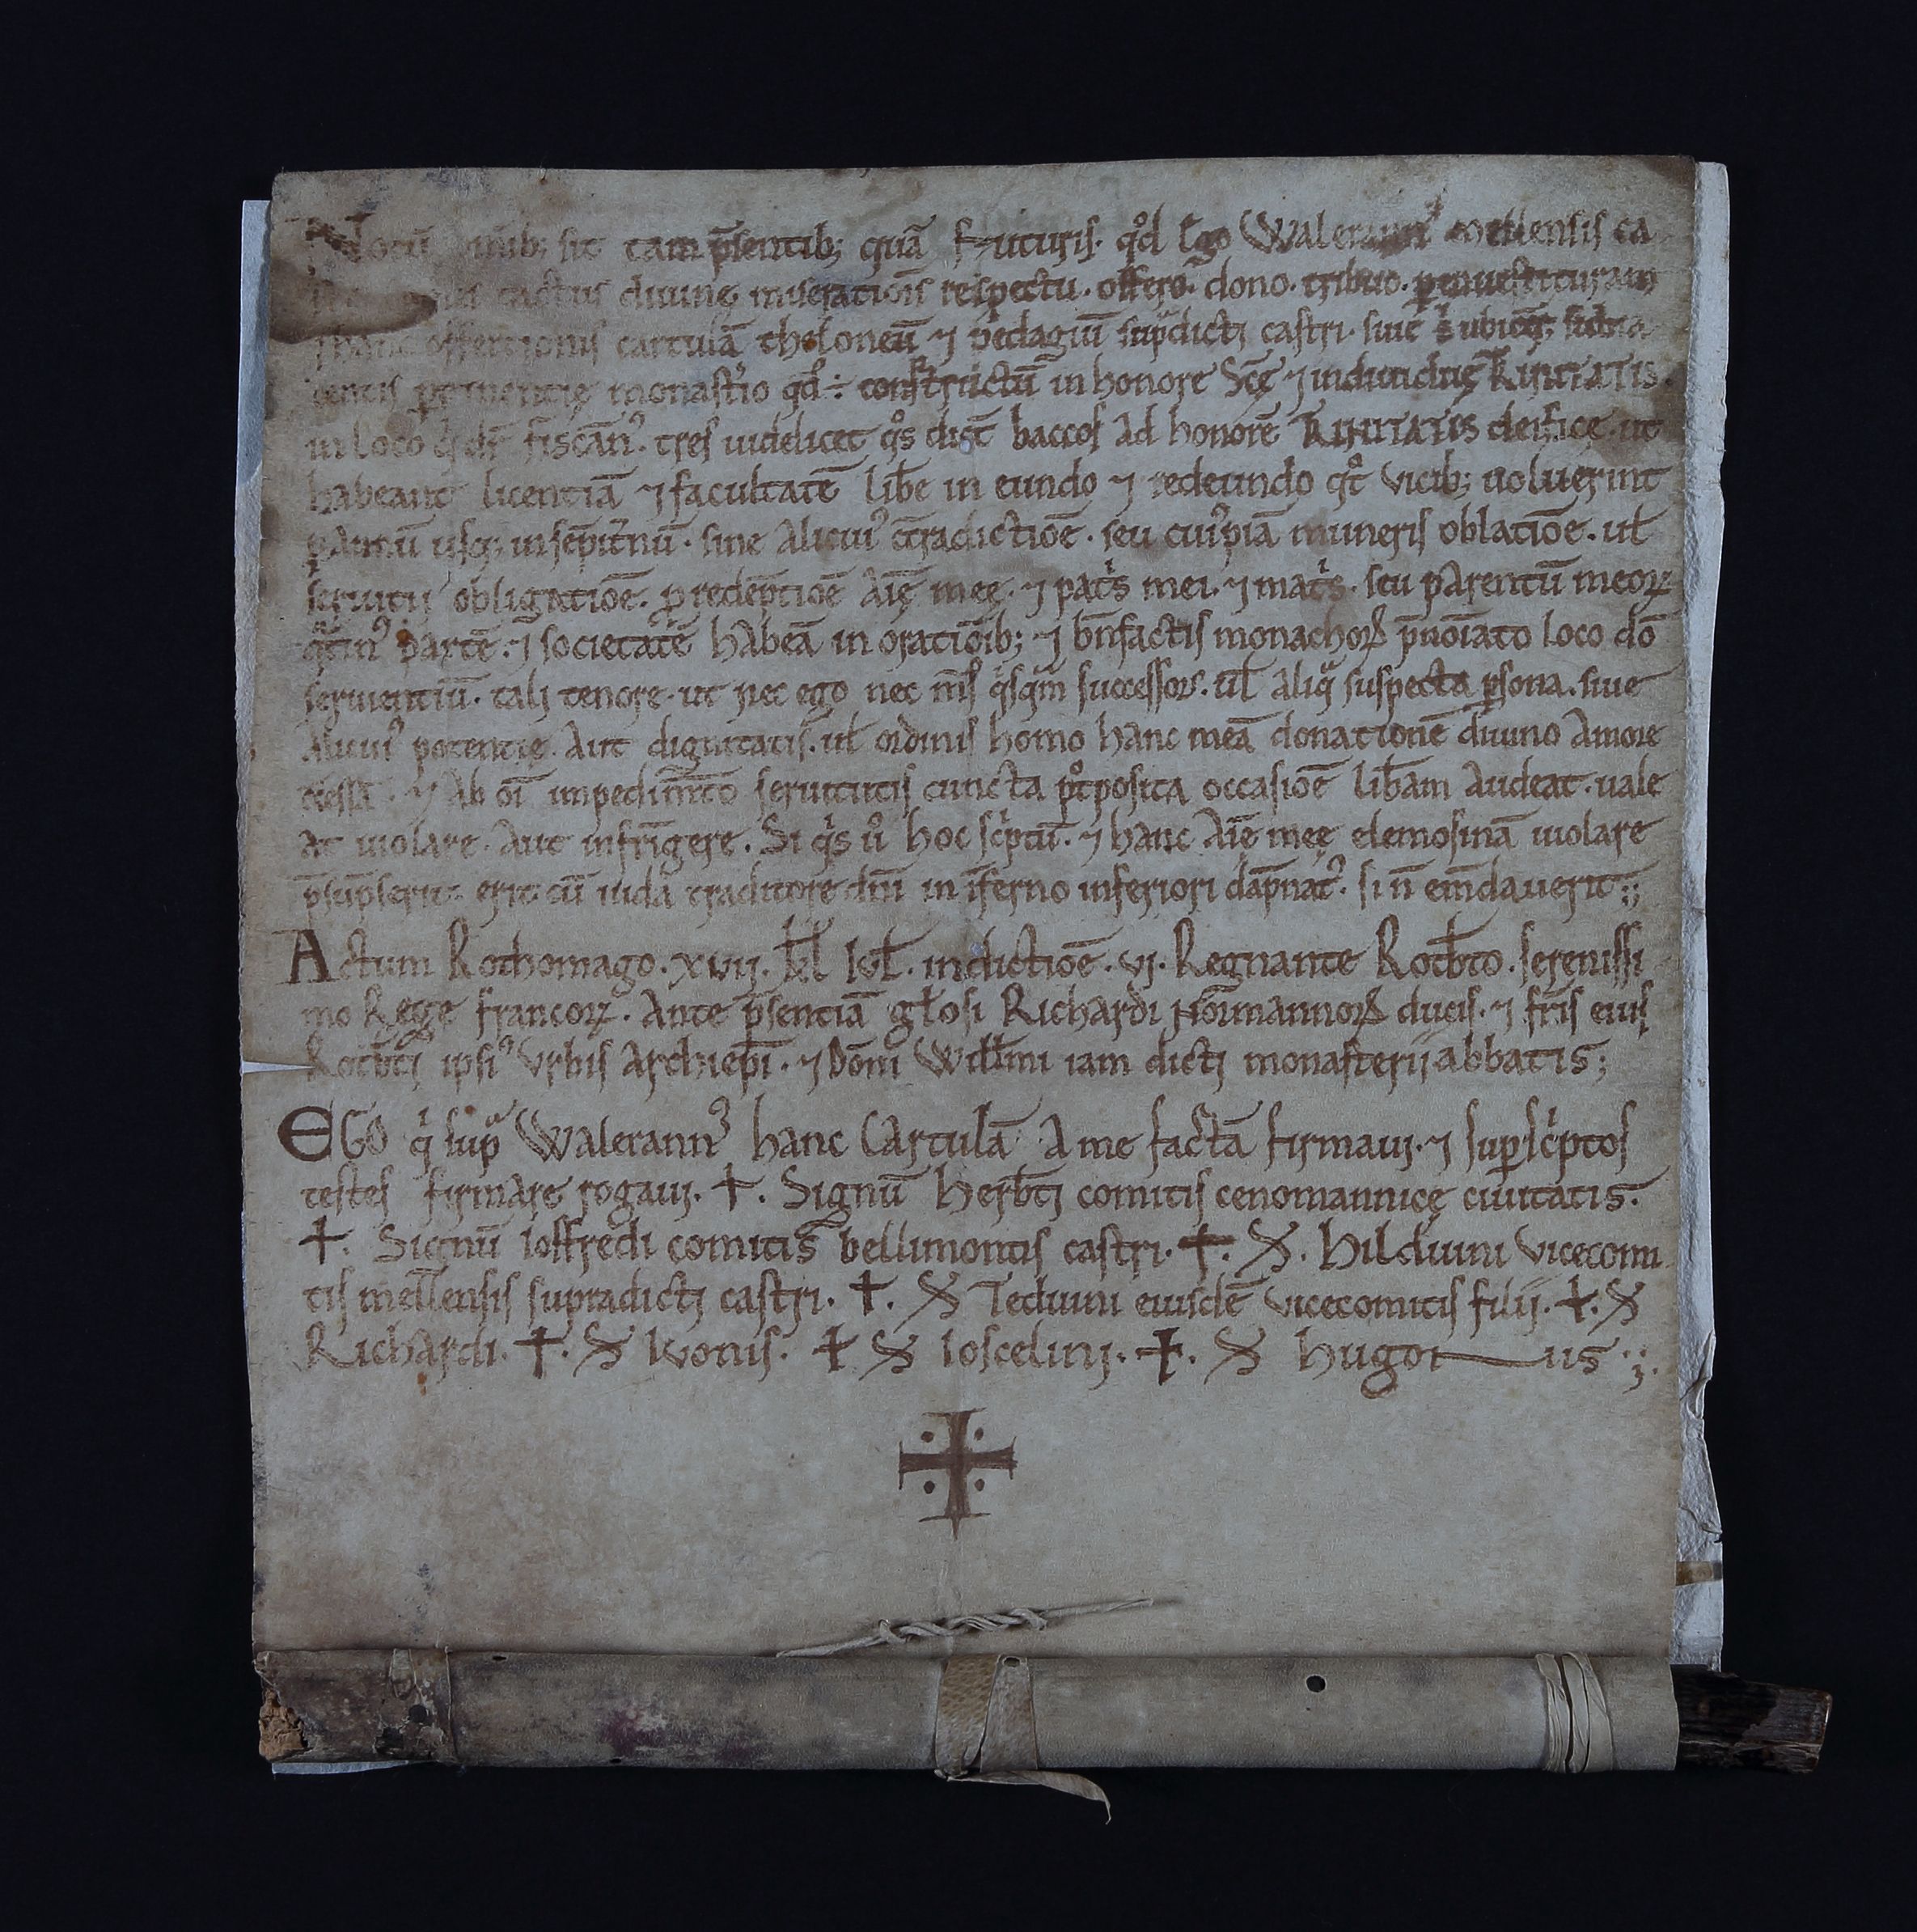 Notū omib; sit tam p̄sentib; quā futuris. qd̊ Ego Walerannꝰ mellensis ca
tactus diuinę miserationis respectu. offero. dono. tribuo. p inuestituram
p hanc offersionis cartulā theloneū ⁊ pedagiū sup̄dicti castri. siue ubicq;
pertinentię monast̄io qd̄ ÷ constructū in honore Scę̄ ⁊ indiuiduę TRINITATIS.
in loco q̇ dr̄ fiscānꝰ. tres uidelicet qͦs dict̄ baccos ad honorē TRINITATIS deificę. ut
habeant licentiā ⁊ facultatē lib̄e in eundo ⁊ redeundo qͦt vicib; uoluerint
p annū usq; in sēpit̄nū. sine alicuiꝰ c̄tradictiōe. seu cuiꝰpiā muneris oblatiōe. ul̄
seruitii obligatiōe. p redēptiōe aīę meę. ⁊ pat̄s mei. ⁊ mat̄s. seu parentū meoꝝ
q̄tinꝰ partē. ⁊ societatē habeā in oratiōib; ⁊ bn̄factis monachoꝝ p̄noīato loco dō
seruientiū. tali tenore. ut nec ego nec m̄s q̇sq̄m successoꝝ. ul̄ aliq̄ suspecta p̱sona. siue
alicuiꝰ potentię. aut dignitatis. ul̄ ordinis homo hanc meā donationē diuino amore
c̄cessā. ⁊ ab oī impedim̄to seruitutis cuncta pͦtposita occasiōe lib̄am audeat. uale
at uiolare. aut infrīgere. Si q̇s ů hoc sc̓ptū. ⁊ hanc aīę meę elemosinā uiolare
p̄sūpserit. erit cū iuda traditore dn̄i in īferno inferiori dāpnatꝰ. si n̄ em̄dauerit;;
Actum Rothomago. xvii. kl̄ Iul̄. indictiōe. vi. Regnante Rotb̄to. serenissi
mo Rege francoꝝ. Ante p̄sentiā gl̄osi Richardi Nōrmannoꝝ ducis. ⁊ fr̄is eius
Rotb̄ti ipsiꝰ vrbis archiep̄i. ⁊ Dom̄i Will̄mi iam dicti monasterii abbatis;
EGO q̇ sup̄ Walerannꝰ hanc Cartulā A me factā firmaui. ⁊ sup̱sc̓ptos
testes firmare rogaui. ✝. Signū herb̄ti comitis cenomannicę ciuitatis.
✝. Signū Ioffredi comitis bellimontis castri. ✝. S. hilduini vicecomi
tis mellensis supradicti castri. ✝. S Teduini eiusdē vicecomitis filii. ✝. S
Richardi. ✝. S Ivonis. ✝ S Ioscelini. ✝. S hugonus ;.